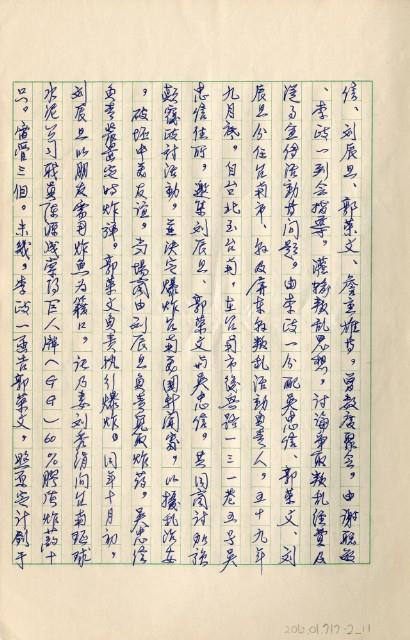 信、刘辰旦、郭荣文、詹重雄等。曾数度聚会。由謝聪敏
、李政一到会指導。灌输叛乱思想。讨论筹取叛乱经费及
從事宣传活动等问题。由李政一分配吴忠信、郭荣文、刘
辰旦分任台南市、縣及屏東縣叛乱活动负责人。五十九年
九月底。自台北至台南。在台南市路一三一巷五号吴
忠信住所。邀集刘辰旦、郭荣文与吴忠信。共同商讨加強
颠覆政讨活动。並決定爆炸台南美国新闻處。以擾乱治安
。破坏中美友谊。当場商由刘辰旦负责覓取炸药。吴忠信
负责装置定时炸弹。郭荣文负责执引爆炸。同年十月初。
刘辰旦以朋友需用炸魚为籍口。託乃妻刘向住南环球
水泥公司職员陈索得巨人牌(GG)60%胶質炸药十
只。雷管三個。未幾。李政一郭荣文。照原定计劃于
2012.01.717-2_11